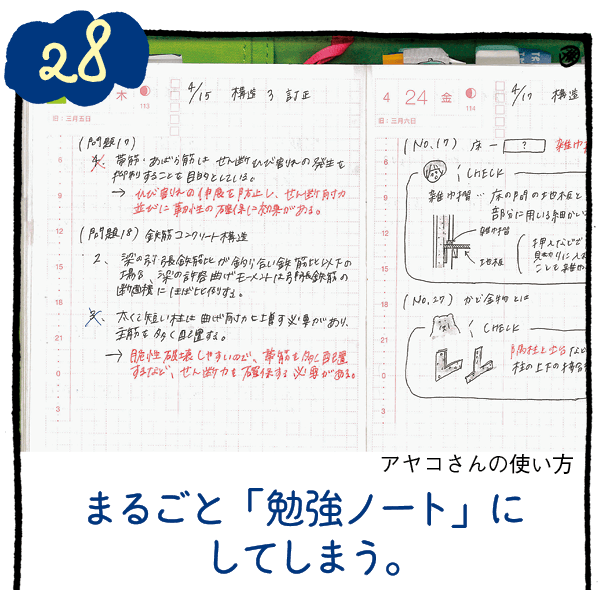 28
木
113
旧:三月五日
4/15 構造 3 訂正
(問題17)
4. 帯筋・あばら筋は せん断ひび割れの発生を
抑制することを目的としている。
→ ひび割れの伸展を防止し、せん断耐力
並びに靭性の確保に効果がある。
(問題18) 鉄筋コンクリート構造
2. 梁の引張鉄筋比が釣り合い鉄筋比以下の
場合、梁の許容曲げモーメントは引張鉄筋の
断面積にほぼ比例する。
3. 太くて短い柱は曲げ耐力を増す必要があり、
主筋を多く配置する。
→ 脆性破壊しやすいので、帯筋を多く配置
するなど、せん断力を確保する必要がある。
4 24 金
114
旧:三月六日
4/17 構造
(No.17) 床ー ?
CHECK
雑巾摺… 床の間の地板と
部分に用いる細かい
雑巾摺
地板
押入などで
(No.27) かど金物とは
CHECK
隅柱と土台など
柱の上下の接合
アヤコさんの使い方
まるごと「勉強ノート」に
してしまう。